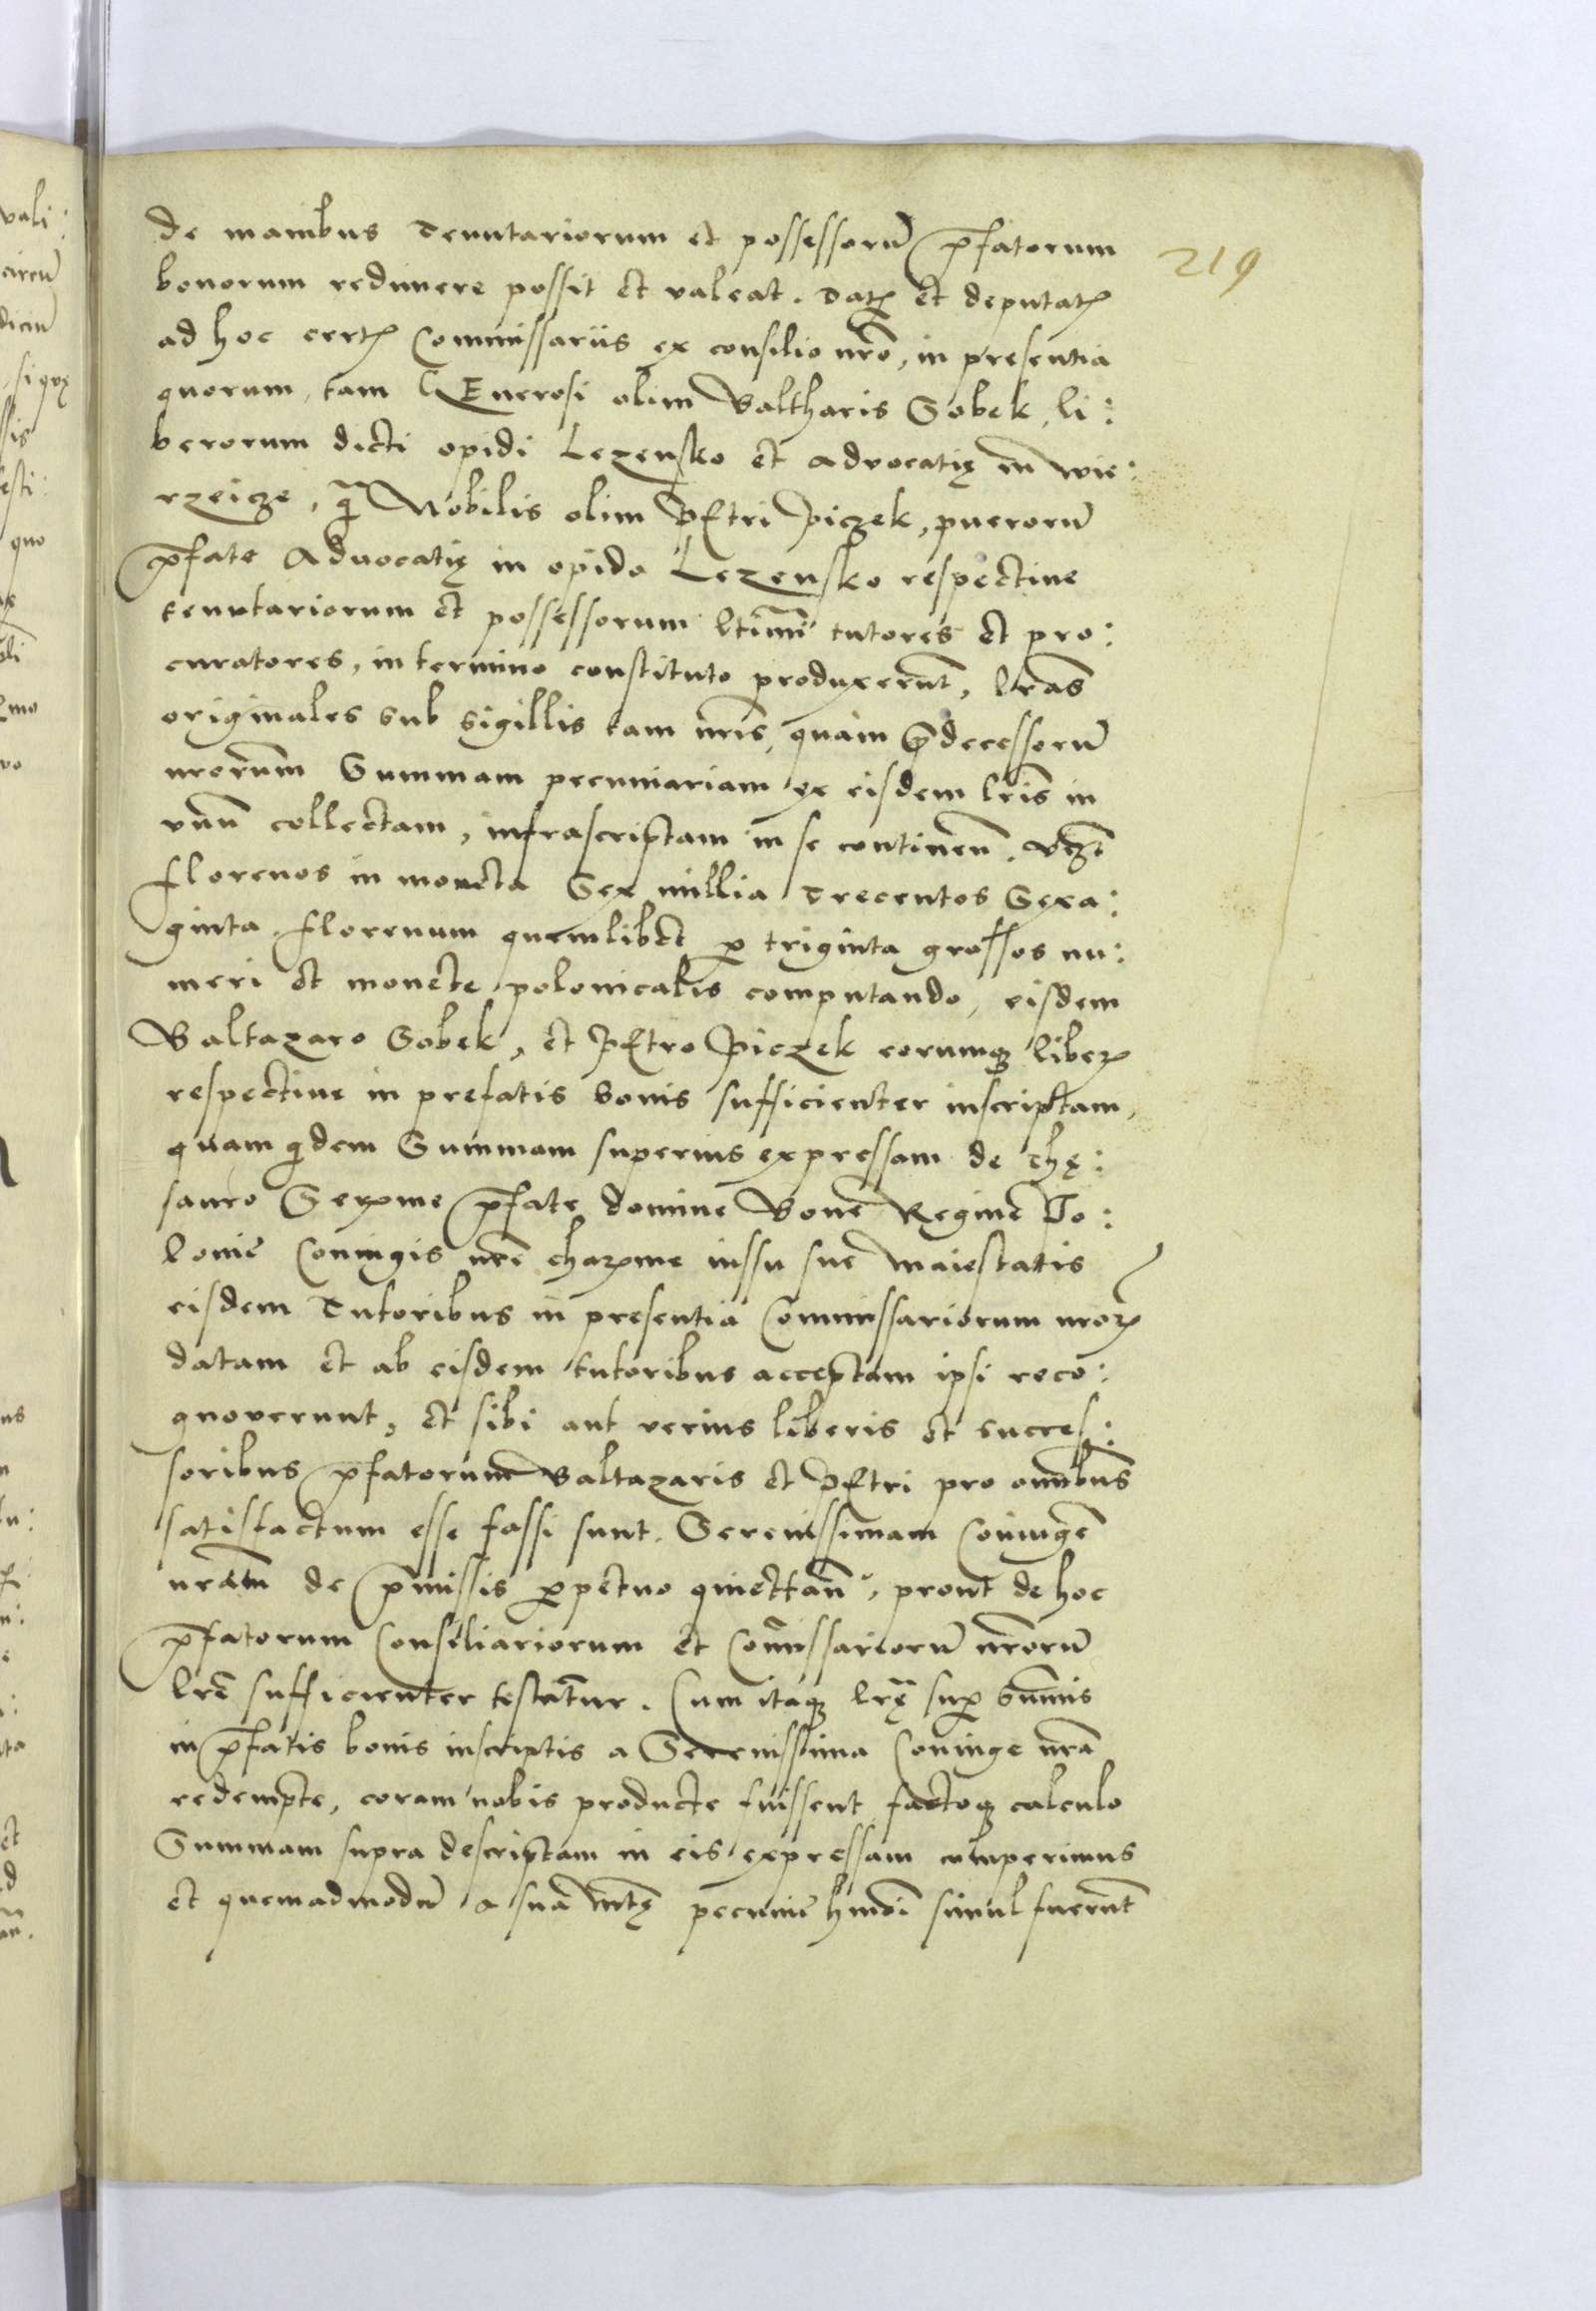 219
de manibus Tenutariorum et possessorū p̄fatorum
bonorum redimere possit et valeat. Datꝭ et deputatꝭ
ad hoc certꝭ Commissariis ex consilio nr̄o, in presentia
quorum, tam GEnerosi olim Baltharis Sobek, li:
berorum dicti opidi Lezensko et advocatię in wie:
rzeicze, q̄ Nobilis olim PEtri Piczek, puerorū
p̄fate Advocatię in opido Lezensko respective
tenutariorum et possessorum ltimī tutores et pro:
curatores, in termino constituto produxerūt, lr̄as
originales sub sigillis tam nr̄is, quam p̄decessorū
nr̄orum Summam pecuniariam ex eisdem lr̄is in
vnū collectam, infrascriptam in se continen̄. vcꝫt
florenos in moneta Sex millia Trecentos Sexa:
ginta. florenum quemlibet ꝑ triginta grossos nu:
meri et monete polonicalis computando, eisdem
Baltazaro Sobek, et PEtro Piczek eorumqꝫ liberꝭ
respective in prefatis bonis sufficienter inscriptam,
quam qidem Summam superius expressam de thę:
sauro Serꝫme p̄fate domine Bone Regine Po:
lonie Coniugis nr̄e charꝫme iussu sue Maiestatis
eisdem Tutoribus in presentia Commissariorum nr̄orꝫ
datam et ab eisdem tutoribus acceptam ipsi reco:
gnoverunt, et sibi aut verius liberis et succes:
soribus p̄fatorum Baltazaris et PEtri pro omībus
satisfactum esse fassi sunt. Serenissimam Coniugē
nr̄am de p̄missis ꝑpetuo quiettan̄, prout de hoc
p̄fatorum Consiliariorum et Com̄issariorū nr̄orū
lr̄e sufficienter testātur. Cum itaqꝫ lr̄ę suꝑ sum̄is
in p̄fatis bonis inscriptis a Serenissima Coniuge nr̄a
redempte, coram nobis producte fuissent factoqꝫ calculo
Summam supra descriptam in eis expressam comperimus
et quemadmodū a sua Mtę pecunie hmōi simul fuerūt